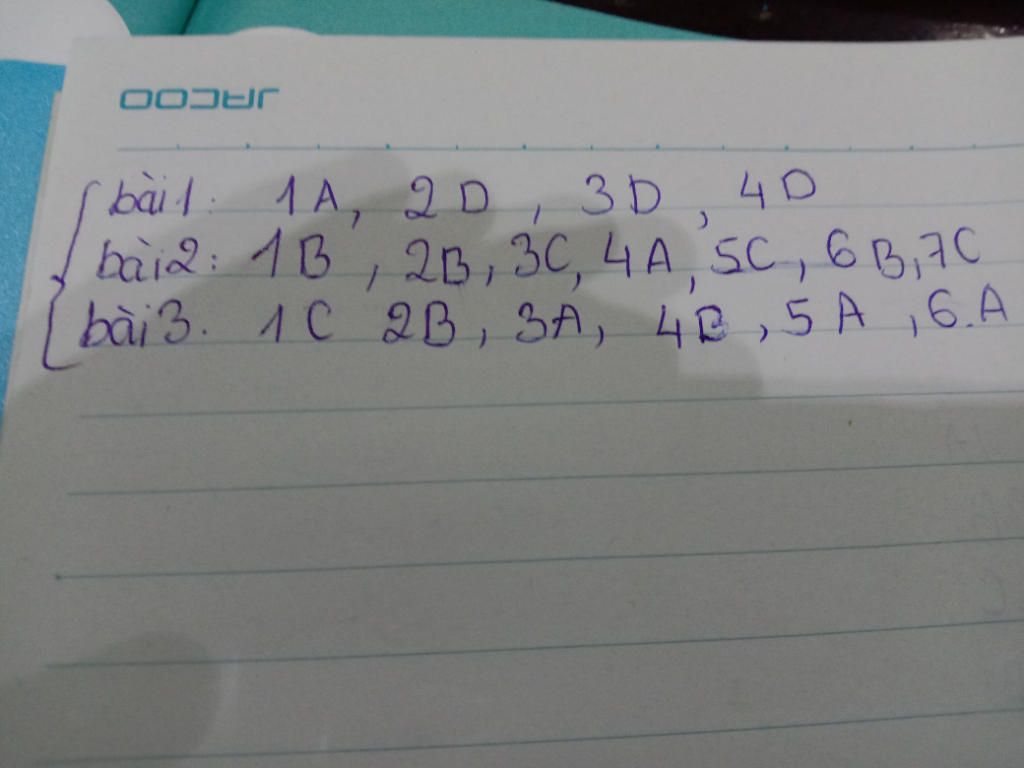 JACOO
bài 1: 1A, 2D, 3D, 4D
bài 2: 1B, 2B, 3C, 4A, 5C, 6B, 7C
bài 3. 1C 2B, 3A, 4B, 5A, 6.A